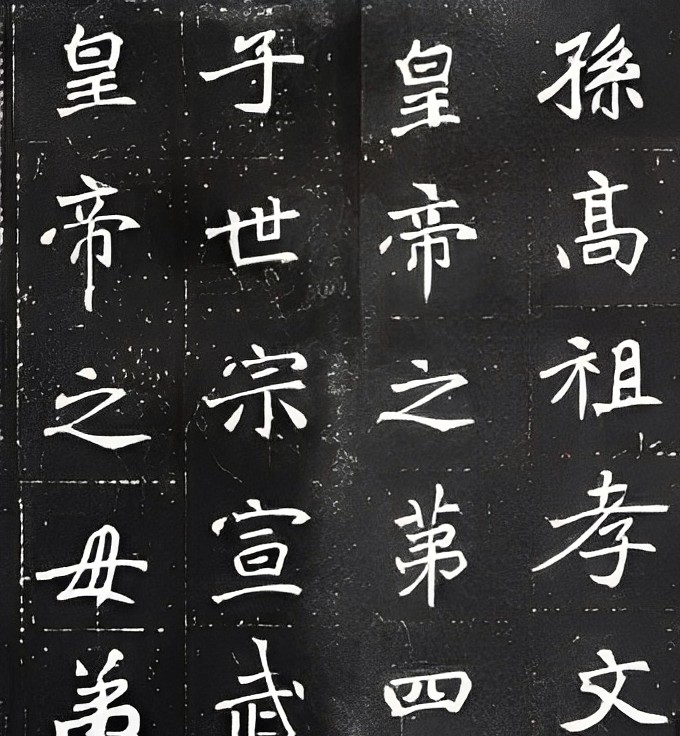 孫高祖孝文
皇帝之第四
子世宗宣武
皇帝之母弟